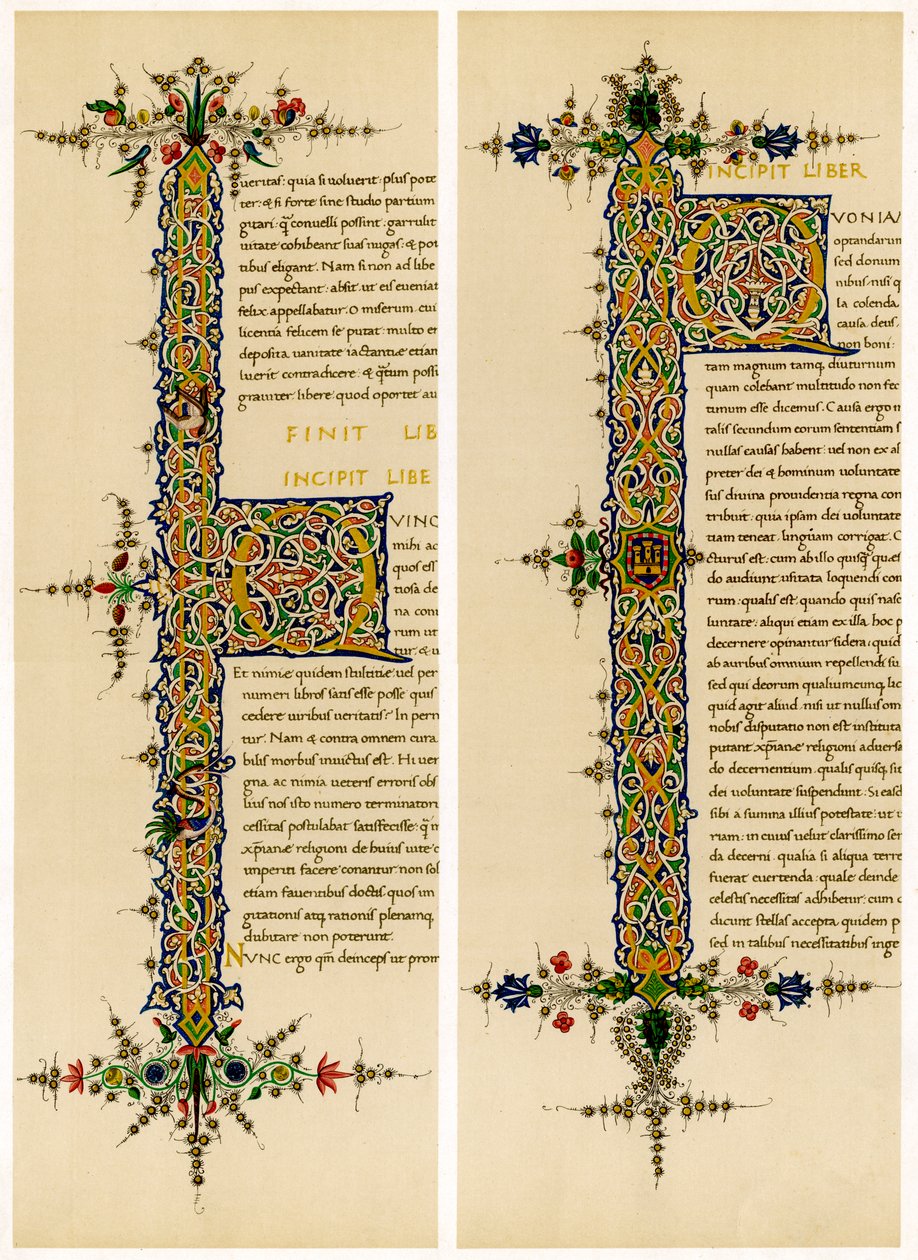 veritas: quia si voluerit plus pote
ter: & si forte sine studio partium
gitari: q̃ convelli possint garrulit
vitate cohibeant suas nugas: & pot
tibus eligant. Nam si non ad libe
pus expectant: absit ut eis eveniat
felix appellabatur. O miserum cui
licentia felicem se putat: multo er
deposita vanitate iactantiæ etiam
luerit contradicere: & q̃tum possi
graviter libere quod oportet au
FINIT LIB
INCIPIT LIBE
VINC
mihi ac
quos es
tiosa de
na conu
rum ut
tur: & u
Et nimiæ quidem stultitiæ vel per
numeri libros satis esse posse quis
cedere viribus veritatis? In pern
tur. Nam & contra omnem cura
bilis morbus invictus est. Hi ver
gna ac nimia veteris erroris obs
lius nos isto numero terminatori
cessitas postulabat satisfecisse: q̃ m
xp̃ianæ religioni de huius vitæ c
imperiti facere conantur non sol
etiam faventibus doctis: quos im
gitationis atq; rationis plenamq;
dubitare non poterunt.
NVNC ergo qm̃ deinceps ut prom
INCIPIT LIBER
QVONIA
optandarum
sed donum
nibus nisi q
la colenda
causa deus,
non boni:
tam magnum tamq; diuturnum
quam colebant multitudo non fec
timum esse dicemus. Causa ergo m
talis secundum eorum sententiam s
nullas causas habent: vel non ex al
preter dei & hominum voluntate
sus divina providentia regna con
tribuit: quia ipsam dei voluntate
tiam teneat, linguam corrigat. C
cturus est: cum ab illo quisq; quesi
do audiunt: usitata loquendi con
rum: qualis est, quando quis nasc
luntate: aliqui etiam ex illa hoc p
decernere opinantur sidera: quid
ab auribus omnium repellendi su
sed qui deorum qualiumcunq; lic
quid agit aliud nisi ut nullus om
nobis disputatio non est instituta
putant xp̃ianæ religioni adversa
do decernentium qualis quisq; sit
dei voluntate suspendunt: Si easd
sibi a summa illius potestate: ut i
riam: in cuius velut clarissimo sen
da decerni: qualia si aliqua terre
fuerat evertenda: quale deinde
celestis necessitas adhibetur: cum d
dicunt stellas accepta quidem p
sed in talibus necessitatibus inge